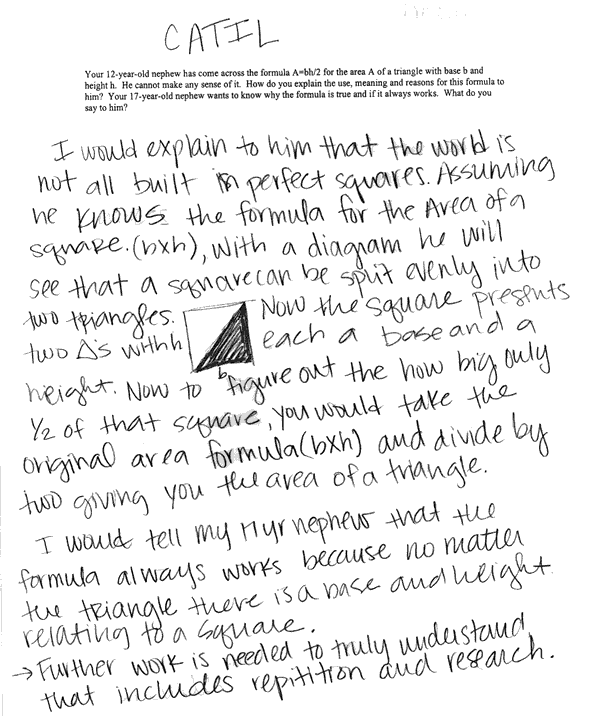 CATIL
Your 12-year-old nephew has come across the formula A=bh/2 for the area A of a triangle with base b and
height h. He cannot make any sense of it. How do you explain the use, meaning and reasons for this formula to
him? Your 17-year-old nephew wants to know why the formula is true and if it always works. What do you
say to him?
I would explain to him that the world is
not all built in perfect squares. Assuming
he knows the formula for the Area of a
square. (bxh), With a diagram he will
see that a square can be split evenly into
two triangles. Now the square presents
two Δ's with h each a base and a
b
height. Now to figure out the how big only
1/2 of that square, you would take the
original area formula (bxh) and divide by
two giving you the area of a triangle.
I would tell my 17yr nephew that the
formula always works because no matter
the triangle there is a base and height
relating to a square.
→ Further work is needed to truly understand
that includes repitition and research.